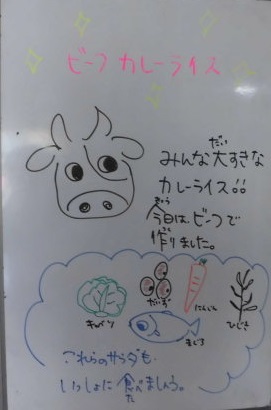 ビーフカレーライス
みんな大すきな
だい
カレーライス!!
きょう
今日はビーフで
つく
作りました。
キャベツ
だいず
にんじん
ひじき
まぐろ
これらのサラダも
いっしょに食べましょう。
た